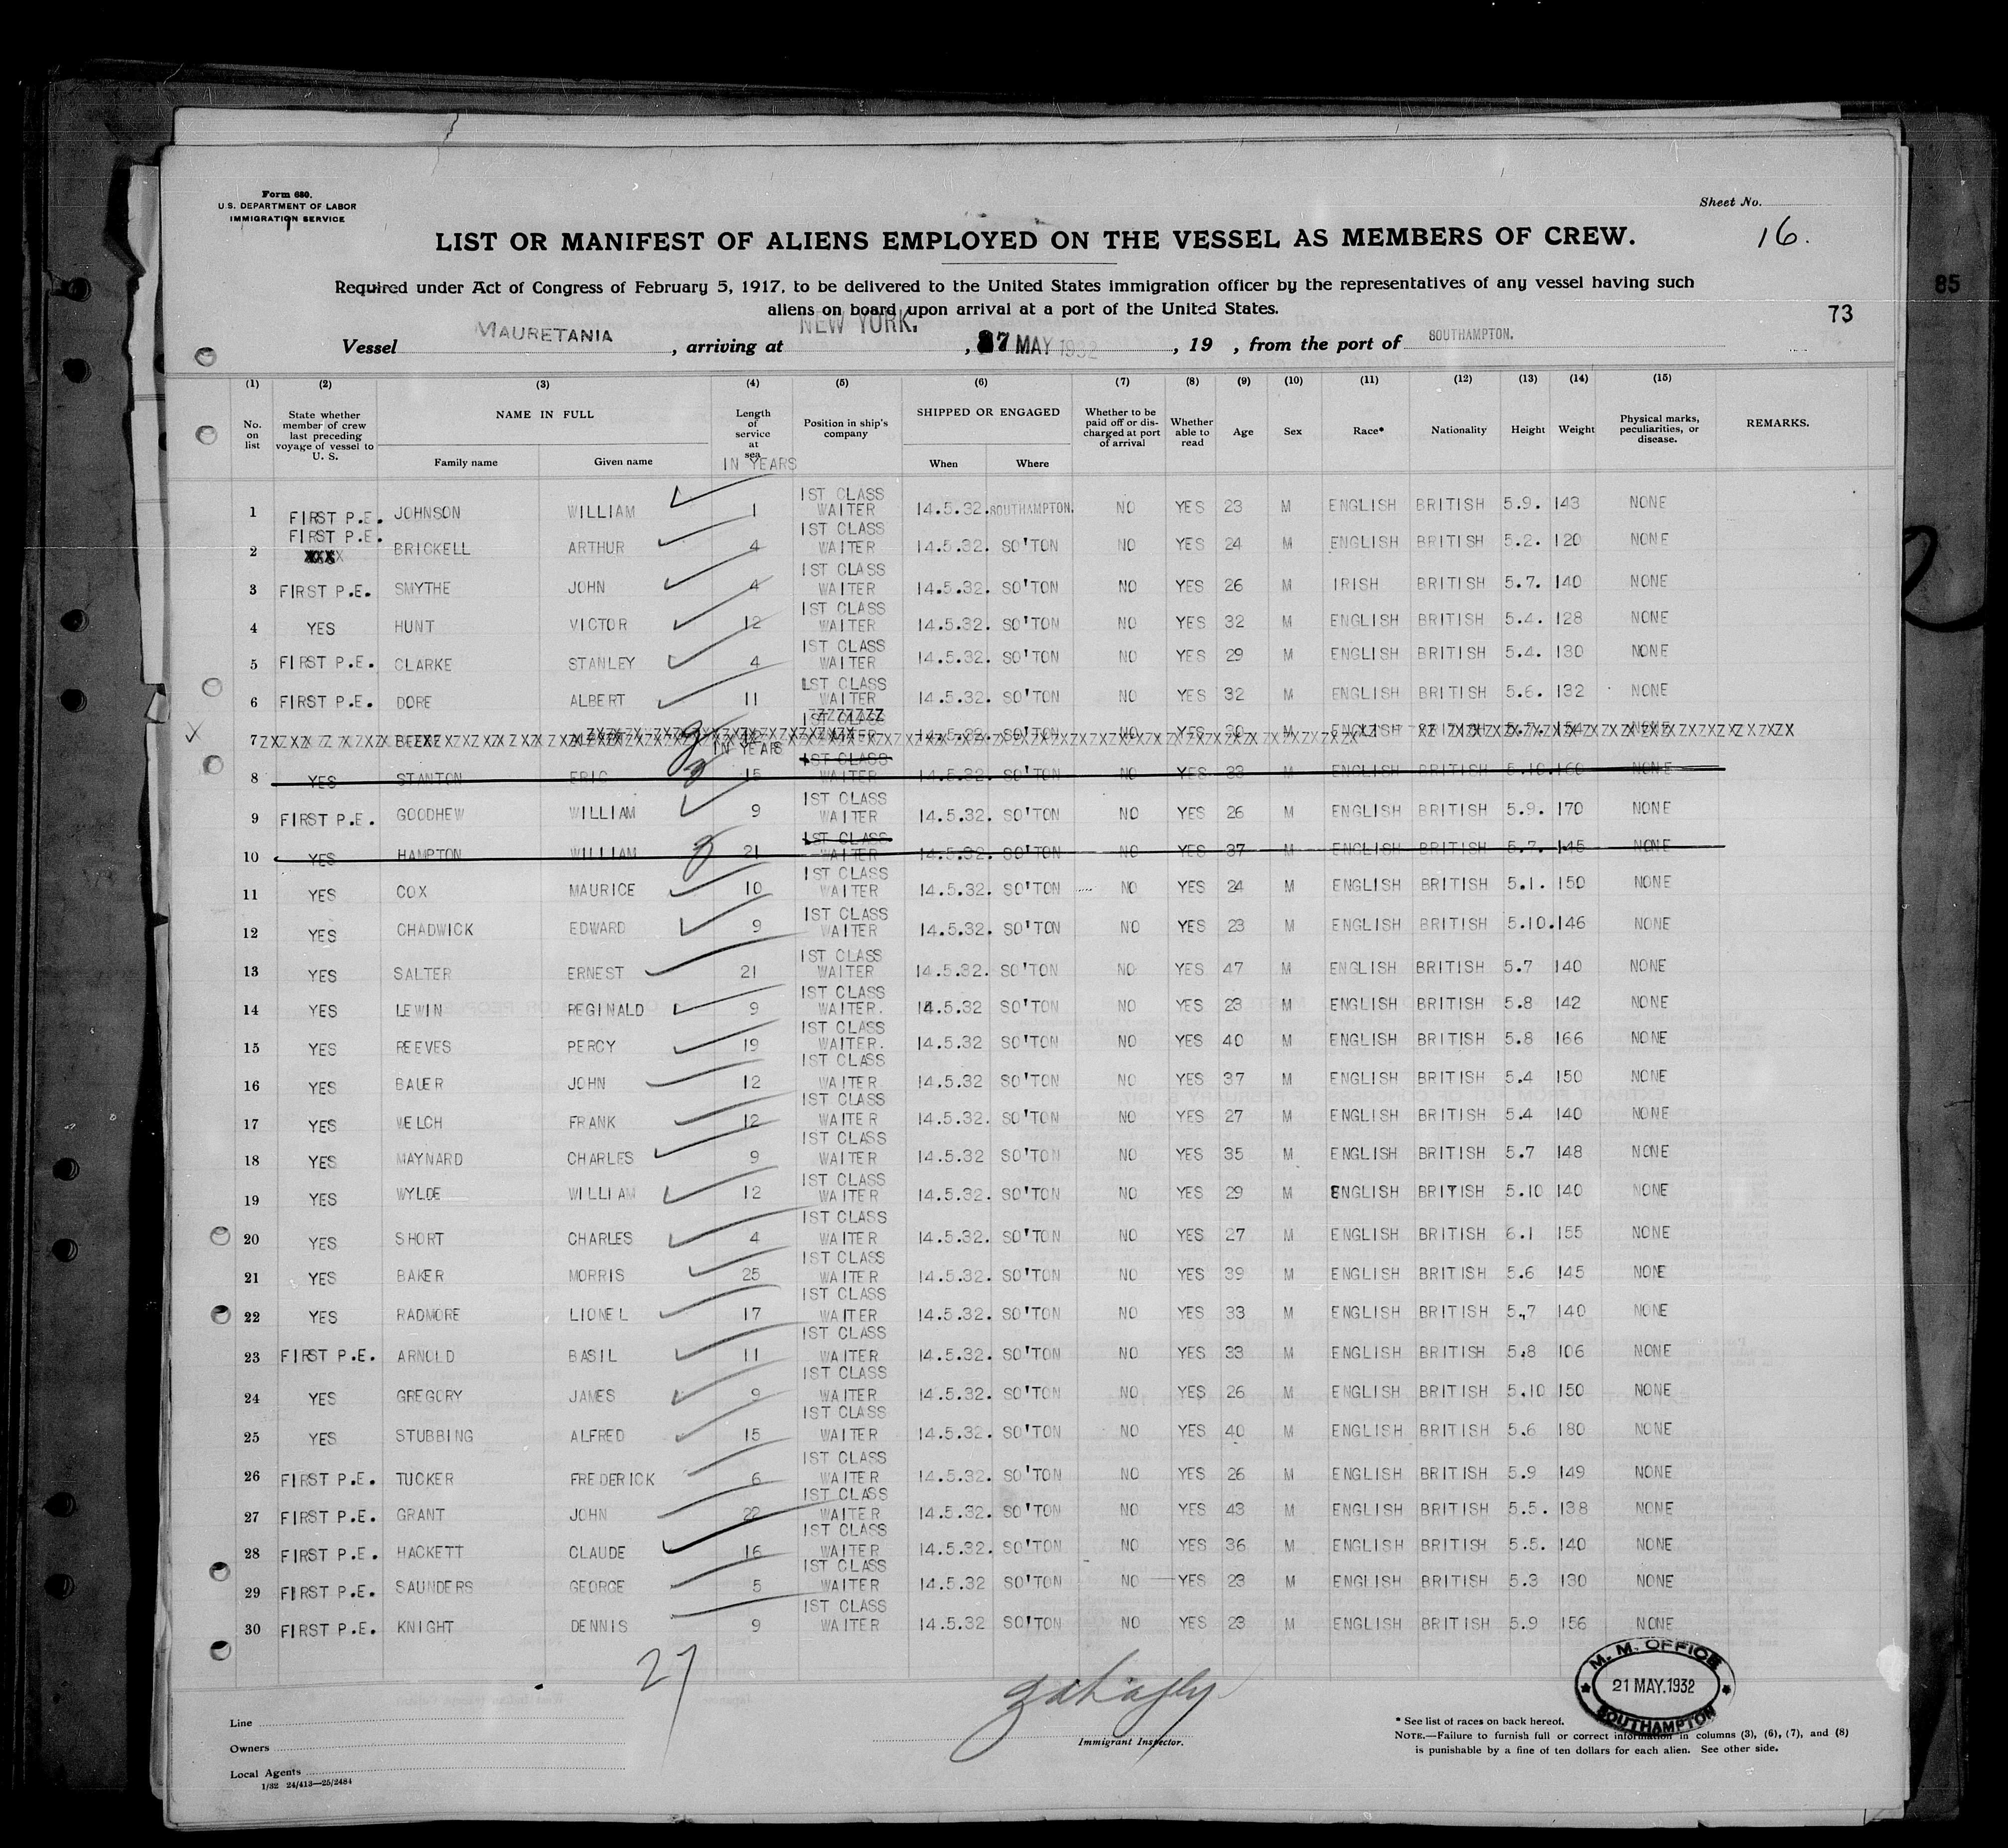 Form 680.
U.S. DEPARTMENT OF LABOR
IMMIGRATION SERVICE
Sheet No.
16.
LIST OR MANIFEST OF ALIENS EMPLOYED ON THE VESSEL AS MEMBERS OF CREW.
Required under Act of Congress of February 5, 1917, to be delivered to the United States immigration officer by the representatives of any vessel having such
aliens on board upon arrival at a port of the United States.
85
73
Vessel MAURETANIA, arriving at NEW YORK., 27 MAY 1932, 19 , from the port of SOUTHAMPTON.
(1) (2) (3) (4) (5) (6) (7) (8) (9) (10) (11) (12) (13) (14) (15)
No. on list State whether member of crew last preceding voyage of vessel to U. S. NAME IN FULL Family name Given name Length of service at sea IN YEARS Position in ship's company SHIPPED OR ENGAGED When Where Whether to be paid off or discharged at port of arrival Whether able to read Age Sex Race* Nationality Height Weight Physical marks, peculiarities, or disease. REMARKS.
1 FIRST P.E. JOHNSON WILLIAM 1 1ST CLASS WAITER 14.5.32. SOUTHAMPTON. NO YES 23 M ENGLISH BRITISH 5.9. 143 NONE
2 FIRST P.E. XXXX BRICKELL ARTHUR 4 1ST CLASS WAITER 14.5.32. SO'TON NO YES 24 M ENGLISH BRITISH 5.2. 120 NONE
3 FIRST P.E. SMYTHE JOHN 4 1ST CLASS WAITER 14.5.32. SO'TON NO YES 26 M IRISH BRITISH 5.7. 140 NONE
4 YES HUNT VICTOR 12 1ST CLASS WAITER 14.5.32. SO'TON NO YES 32 M ENGLISH BRITISH 5.4. 128 NONE
5 FIRST P.E. CLARKE STANLEY 4 1ST CLASS WAITER 14.5.32. SO'TON NO YES 29 M ENGLISH BRITISH 5.4. 130 NONE
6 FIRST P.E. DORE ALBERT 11 1ST CLASS WAITER 14.5.32. SO'TON NO YES 32 M ENGLISH BRITISH 5.6. 132 NONE
7 1ST CLASS 14.5.32. SO'TON NO YES 30 M ENGLISH BRITISH 5.7. NONE
IN YEARS
8 YES STANTON ERIC 15 1ST CLASS WAITER 14.5.32. SO'TON NO YES 33 M ENGLISH BRITISH 5.10. 160 NONE
9 FIRST P.E. GOODHEW WILLIAM 9 1ST CLASS WAITER 14.5.32. SO'TON NO YES 26 M ENGLISH BRITISH 5.9. 170 NONE
10 YES HAMPTON WILLIAM 21 1ST CLASS WAITER 14.5.32. SO'TON NO YES 37 M ENGLISH BRITISH 5.7. 145 NONE
11 YES COX MAURICE 10 1ST CLASS WAITER 14.5.32. SO'TON NO YES 24 M ENGLISH BRITISH 5.1. 150 NONE
12 YES CHADWICK EDWARD 9 1ST CLASS WAITER 14.5.32. SO'TON NO YES 23 M ENGLISH BRITISH 5.10. 146 NONE
13 YES SALTER ERNEST 21 1ST CLASS WAITER 14.5.32. SO'TON NO YES 47 M ENGLISH BRITISH 5.7 140 NONE
14 YES LEWIN REGINALD 9 1ST CLASS WAITER. 14.5.32 SO'TON NO YES 23 M ENGLISH BRITISH 5.8 142 NONE
15 YES REEVES PERCY 19 1ST CLASS WAITER. 14.5.32 SO'TON NO YES 40 M ENGLISH BRITISH 5.8 166 NONE
16 YES BAUER JOHN 12 1ST CLASS WAITER 14.5.32 SO'TON NO YES 37 M ENGLISH BRITISH 5.4 150 NONE
17 YES WELCH FRANK 12 1ST CLASS WAITER 14.5.32. SO'TON NO YES 27 M ENGLISH BRITISH 5.4 140 NONE
18 YES MAYNARD CHARLES 9 1ST CLASS WAITER 14.5.32 SO'TON NO YES 35 M ENGLISH BRITISH 5.7 148 NONE
19 YES WYLDE WILLIAM 12 1ST CLASS WAITER 14.5.32. SO'TON NO YES 29 M ENGLISH BRITISH 5.10 140 NONE
20 YES SHORT CHARLES 4 1ST CLASS WAITER 14.5.32. SO'TON NO YES 27 M ENGLISH BRITISH 6.1 155 NONE
21 YES BAKER MORRIS 25 1ST CLASS WAITER 14.5.32. SO'TON NO YES 39 M ENGLISH BRITISH 5.6 145 NONE
22 YES RADMORE LIONEL 17 1ST CLASS WAITER 14.5.32. SO'TON NO YES 33 M ENGLISH BRITISH 5.,7 140 NONE
23 FIRST P.E. ARNOLD BASIL 11 1ST CLASS WAITER 14.5.32. SO'TON NO YES 33 M ENGLISH BRITISH 5.8 106 NONE
24 YES GREGORY JAMES 9 1ST CLASS WAITER 14.5.32. SO'TON NO YES 26 M ENGLISH BRITISH 5.10 150 NONE
25 YES STUBBING ALFRED 15 1ST CLASS WAITER 14.5.32. SO'TON NO YES 40 M ENGLISH BRITISH 5.6 180 NONE
26 FIRST P.E. TUCKER FREDERICK 6 1ST CLASS WAITER 14.5.32. SO'TON NO YES 26 M ENGLISH BRITISH 5.9 149 NONE
27 FIRST P.E. GRANT JOHN 22 1ST CLASS WAITER 14.5.32. SO'TON NO YES 43 M ENGLISH BRITISH 5.5. 138 NONE
28 FIRST P.E. HACKETT CLAUDE 16 1ST CLASS WAITER 14.5.32. SO'TON NO YES 36 M ENGLISH BRITISH 5.5. 140 NONE
29 FIRST P.E. SAUNDERS GEORGE 5 1ST CLASS WAITER 14.5.32 SO'TON NO YES 23 M ENGLISH BRITISH 5.3 130 NONE
30 FIRST P.E. KNIGHT DENNIS 9 1ST CLASS WAITER 14.5.32 SO'TON NO YES 23 M ENGLISH BRITISH 5.9 156 NONE
27
M. M. OFFICE
21 MAY.1932
SOUTHAMPTON
Line
Owners
Local Agents
1/32 24/413—25/2484
Immigrant Inspector.
* See list of races on back hereof.
NOTE.—Failure to furnish full or correct information in columns (3), (6), (7), and (8)
is punishable by a fine of ten dollars for each alien. See other side.